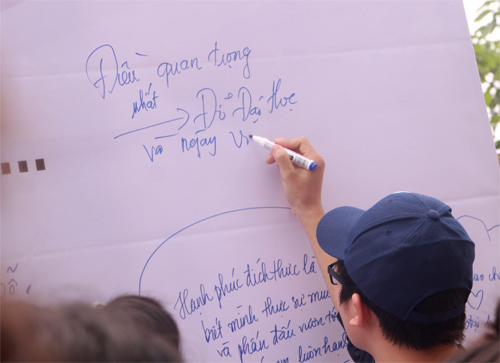 Điều quan trọng
nhất
Đỗ Đại Học
và ngày
Hạnh phúc đích thực là
biết mình thực sự
và phấn đấu vươn
luôn